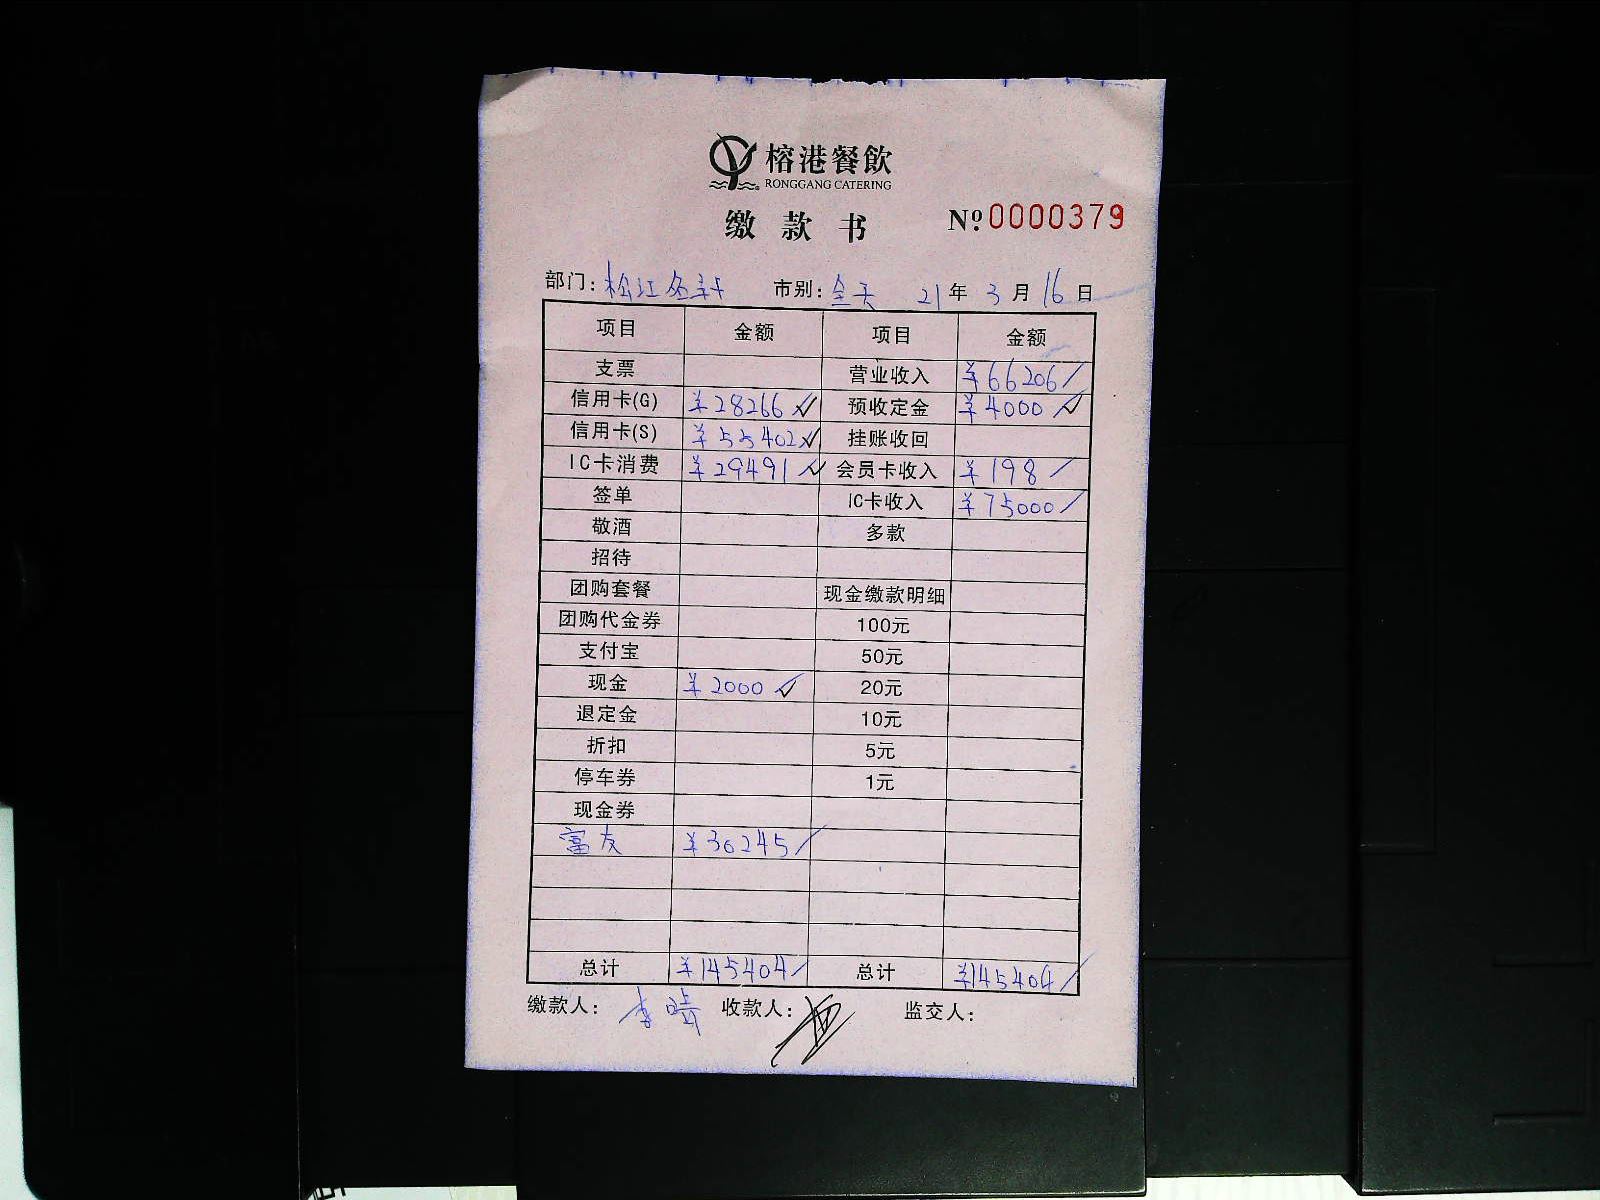 榕港餐飲
RONGGANG CATERING
缴款书 №0000379
部门: 松江 市别: 全天 21年3月16日
项目 金额 项目 金额
支票 营业收入 ¥66206
信用卡(G) ¥28266 预收定金 ¥4000
信用卡(S) ¥55402 挂账收回
IC卡消费 ¥29491 会员卡收入 ¥198
签单 IC卡收入 ¥75000
敬酒 多款
招待
团购套餐 现金缴款明细
团购代金券 100元
支付宝 50元
现金 ¥2000 20元
退定金 10元
折扣 5元
停车券 1元
现金券
富友 ¥30245
总计 ¥145404 总计 ¥145404
缴款人: 李晴 收款人: 监交人: